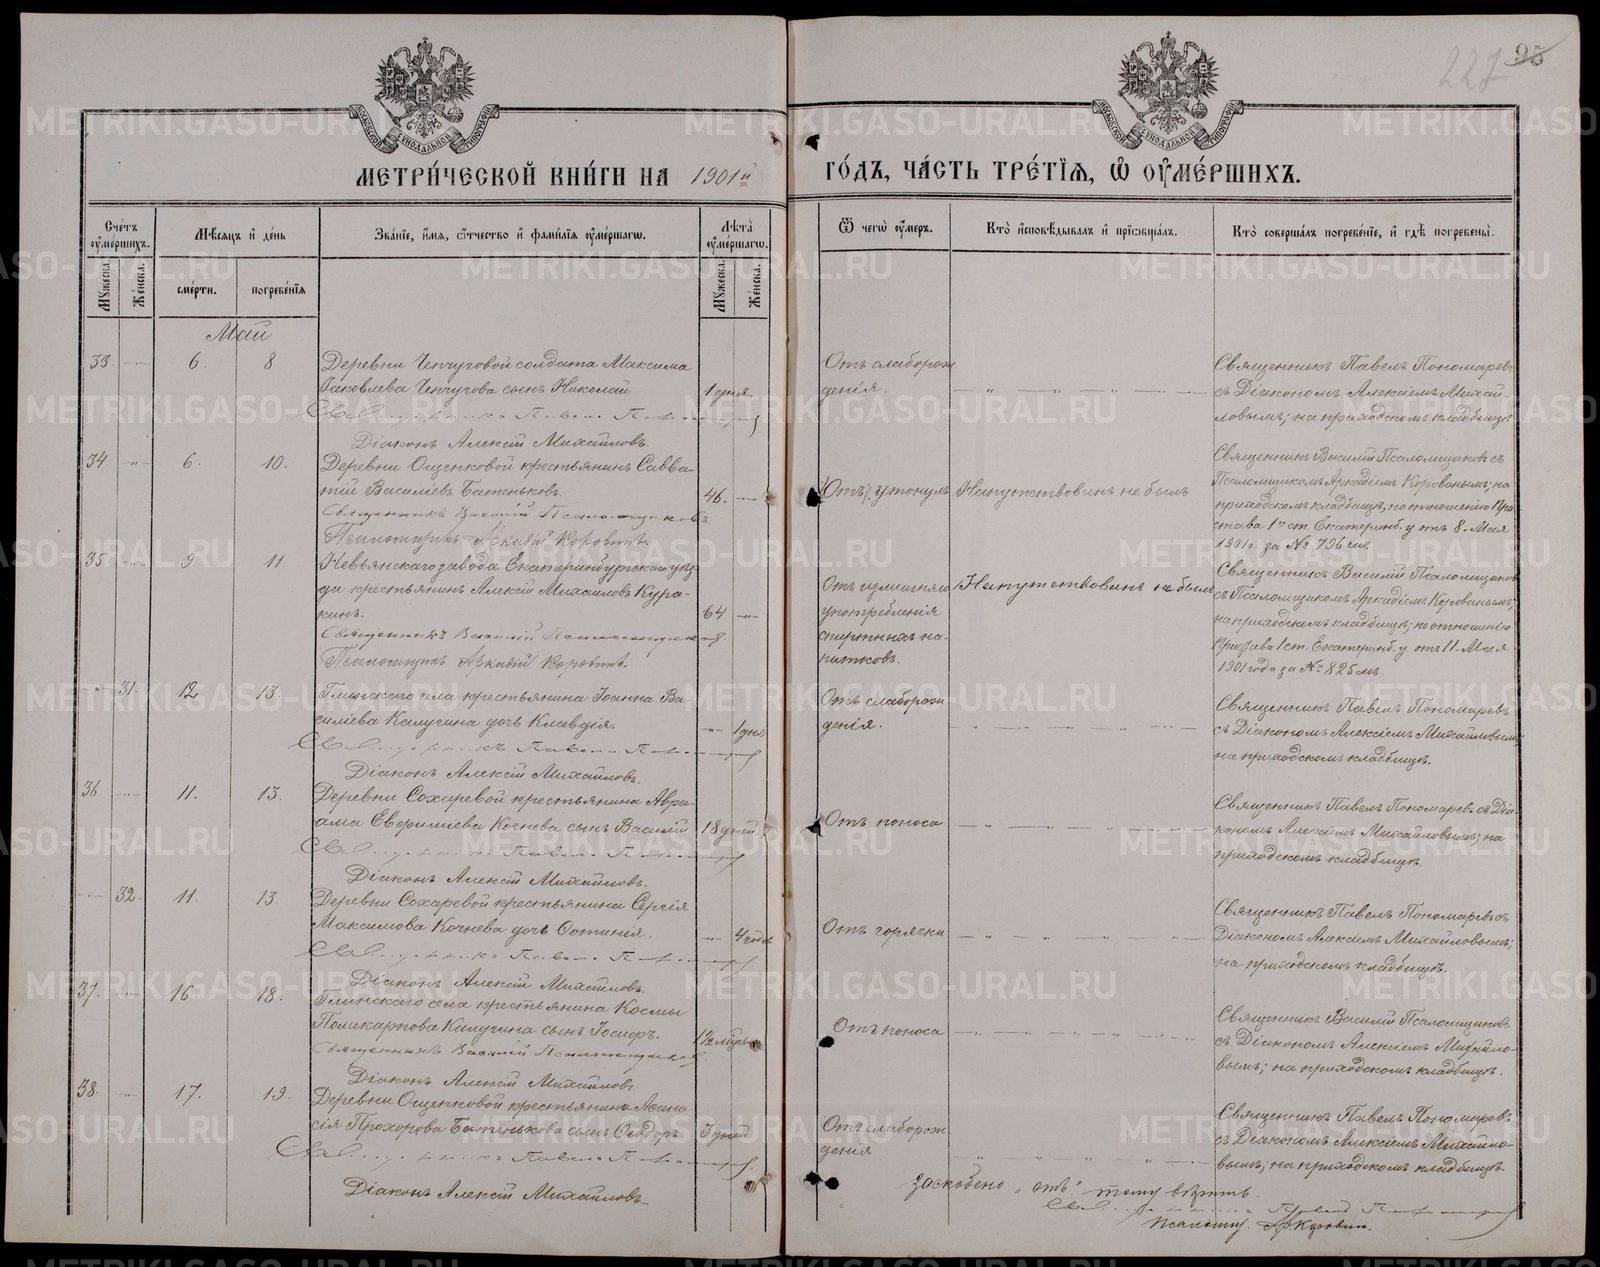 227 95
МОСКОВСКОЙ СѴНОДАЛЬНОЙ ТИПОГРАФІИ
МОСКОВСКОЙ СѴНОДАЛЬНОЙ ТИПОГРАФІИ
МЕТРИ́ЧЕСКОЙ КНИ́ГИ НА 1901й ГО́ДЪ, ЧА́СТЬ ТРЕ́ТІѦ, Ѡ ОУМЕ́РШИХЪ.
Сче́тъ оумершихъ.
Мужеска.
Женска.
Мѣсяцъ и де́нь
сме́рти.
погребе́нія
Зва́ніе, и́мя, о́тчество и фами́лія оуме́ршагѡ.
Лѣта оуме́ршагѡ.
Мужеска.
Женска.
Ѿ чегѡ̀ оу́меръ.
Кто̀ исповѣдывалъ и пріобщалъ.
Кто̀ соверша́лъ погребе́ніе, и гдѣ̀ погребены̀.
Май
33 6 8
Деревни Чепчуговой солдата Максима
Іаковлева Чепчугова сынъ Николай
1 дня.
Діаконъ Алексій Михайловъ.
Отъ слаборож
денія.
Священникъ Павелъ Пономаревъ
съ Діакономъ Алексіемъ Михай-
ловымъ; на приходскомъ кладбищѣ
34 6. 10.
Деревни Ощепковой крестьянинъ Савва-
тій Василіевъ Батеньковъ.
46.
Священникъ Василій Псаломщиковъ.
Псаломщикъ Аркадій Коровинъ.
утонулъ
Напутствованъ не былъ
Священникъ Василій Псаломщиковъ съ
Псаломщикомъ Аркадіемъ Коровинымъ; на
приходскомъ кладбищѣ, по отношенію При
става 1го ст. Екатеринб. у. отъ 8. Мая
1901 г. за № 796мъ
35 9. 11.
Невьянскаго завода Екатеринбургскаго уѣз
да крестьянинъ Алексій Михаиловъ Кура-
кинъ.
64
Священникъ Василій Псаломщиковъ.
Псаломщикъ Аркадій Коровинъ.
Отъ излишняго
употребленія
спиртныхъ на-
питковъ.
Напутствованъ не былъ
Священникъ Василій Псаломщиковъ
съ Псаломщикомъ Аркадіемъ Коровинымъ;
на приходскомъ кладбищѣ; по отношенію
Пристава 1 ст. Екатеринб. у. отъ 11. Мая
1901 года за № 825мъ
31. 12 13.
Глинскаго села крестьянина Іоанна Ва-
силіева Калугина дочь Клавдія.
1 дня
Діаконъ Алексій Михайловъ.
Отъ слаборож
денія.
Священникъ Павелъ Пономаревъ
съ Діакономъ Алексіемъ Михайловымъ;
на приходскомъ кладбищѣ.
36 11. 13.
Деревни Сохаревой крестьянина Авра-
ама Евфиміева Кочнева сынъ Василій
18 дней.
Діаконъ Алексій Михайловъ.
Отъ поноса
Священникъ Павелъ Пономаревъ съ Діа
кономъ Алексіемъ Михайловымъ; на
приходскомъ кладбищѣ.
32. 11. 13.
Деревни Сохаревой крестьянина Сергія
Максимова Кочнева дочь Фотинія.
4 года
Діаконъ Алексій Михайловъ.
Отъ горячки
Священникъ Павелъ Пономаревъ съ
Діакономъ Алексіемъ Михайловымъ;
на приходскомъ кладбищѣ.
37. 16 18.
Глинскаго села крестьянина Космы
Поликарпова Калугина сынъ Іосифъ.
Священникъ Василій Псаломщиковъ
Діаконъ Алексій Михайловъ
Отъ поноса
Священникъ Василій Псаломщиковъ
съ Діакономъ Алексіемъ Михайло-
вымъ; на приходскомъ кладбищѣ.
38. 17. 19.
Деревни Ощепковой крестьянина Афана
сія Прохорова Батенькова сынъ Ѳедоръ
3 дней
Діаконъ Алексій Михайловъ
Отъ слаборож
денія
Священникъ Павелъ Пономаревъ
съ Діакономъ Алексіемъ Михайло-
вымъ; на приходскомъ кладбищѣ.
Заскоблено „отъ" тому вѣрить.
Псаломщ. Ар. Коровин.
METRIKI.GASO-URAL.RU